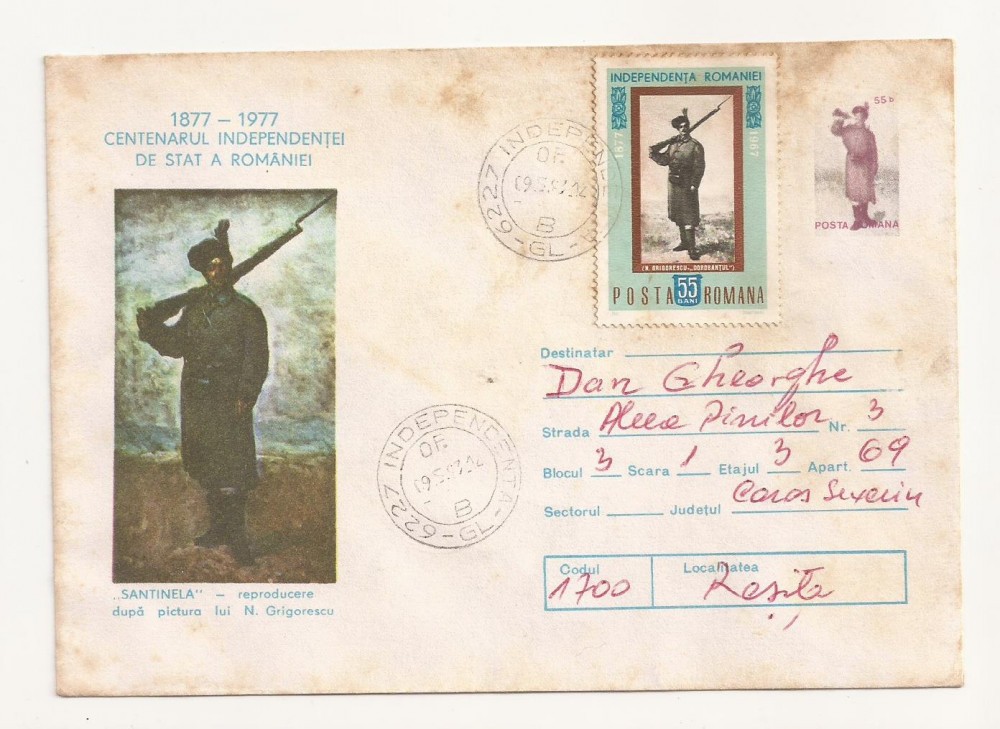 1877 – 1977
CENTENARUL INDEPENDENȚEI
DE STAT A ROMÂNIEI
„SANTINELA” – reproducere
după pictura lui N. Grigorescu
6227 INDEPENDENTA -GL-
OF.
B
INDEPENDENȚA ROMANIEI
1877
1967
(N. GRIGORESCU-„DOROBANȚUL”)
POSTA 55 BANI ROMANA
55 b
POSTA ROMANA
6227 INDEPENDENTA -GL-
OF.
B
Destinatar
Dan Gheorghe
Strada Aleea Pinilor Nr. 3
Blocul 3 Scara 1 Etajul 3 Apart. 69
Sectorul Județul Caras Severin
Codul Localitatea
1700 Resița